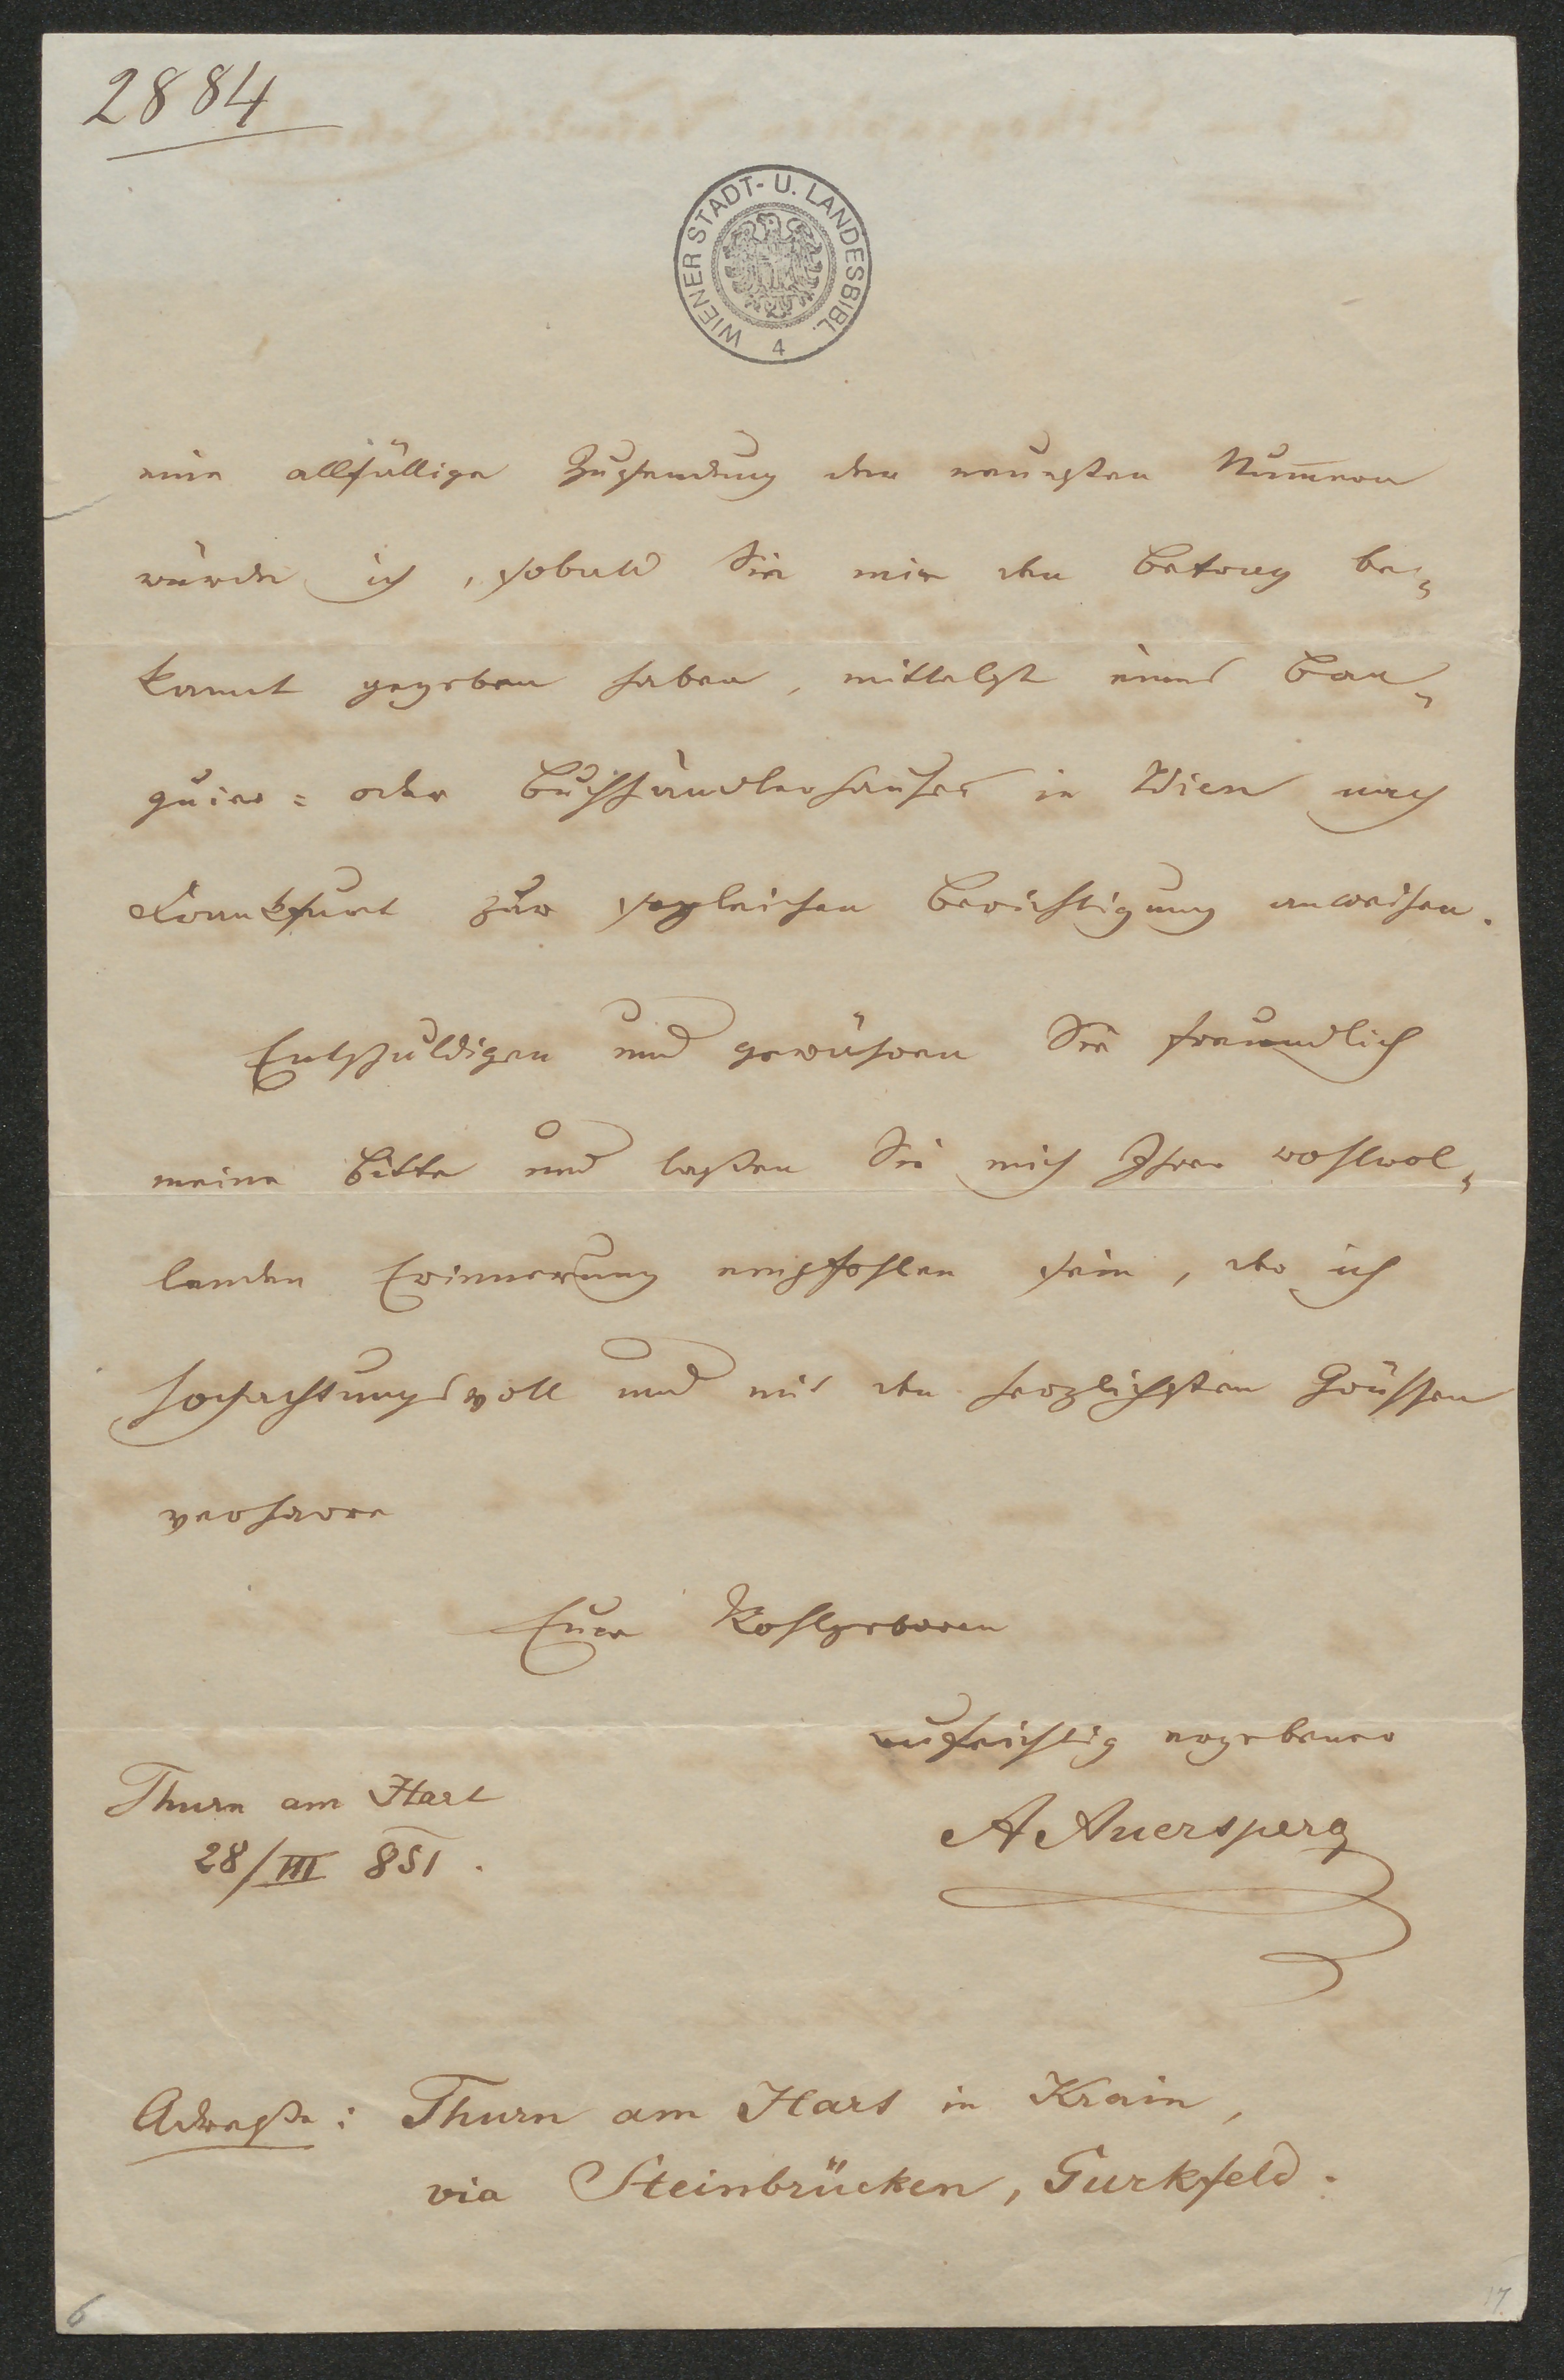 2884
WIENER STADT- U. LANDESBIBL.
4
eine allfällige Zusendung der neuesten Num̄ern
würde ich, sobald Sie mir den Betrag be„
kannt gegeben haben, mittelst eines Ban„
quier= oder Buchhändlerhauses in Wien nach
Frankfurt zur sogleichen Berichtigung anweisen.
Entschuldigen und gewähren Sie freundlich
meine Bitte und laßen Sie mich Ihrer wohlwol„
lenden Erinnerung empfohlen sein, der ich
hochachtungsvoll und mit den herzlichsten Grüssen
verharre
Euer Wohlgeboren
aufrichtig ergebener
A Auersperg
Thurn am Hart
28/III 851.
Adreße: Thurn am Hart in Krain,
via Steinbrücken, Gurkfeld.
6
17